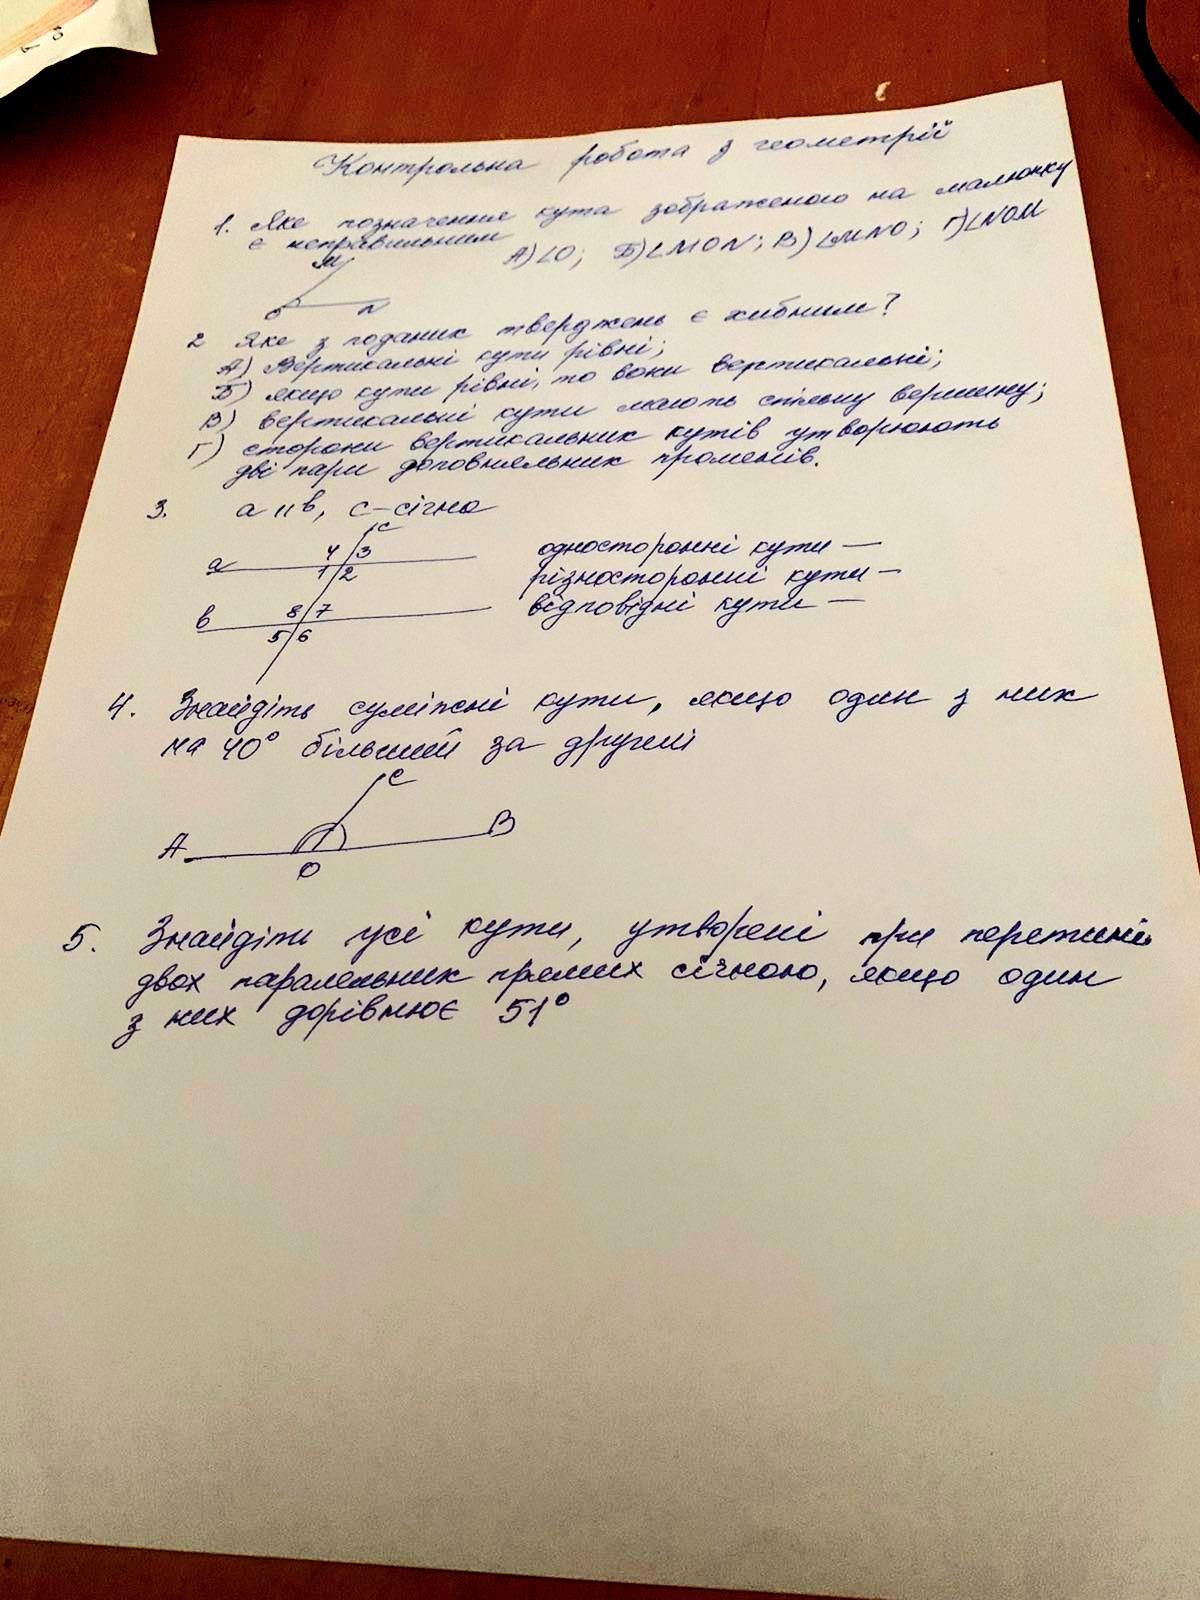 Контрольна робота з геометрії
1. Яке позначення кута зображеного на малюнку
є неправильним
А) ∠O; Б) ∠MON; В) ∠MNO; Г) ∠NOM
M
O N
2 Яке з поданих тверджень є хибним?
А) Вертикальні кути рівні;
Б) якщо кути рівні, то вони вертикальні;
В) вертикальні кути мають спільну вершину;
Г) сторони вертикальних кутів утворюють
дві пари доповняльних променів.
3. a || b, c - січна
c
a 4 3
1 2
b 8 7
5 6
односторонні кути —
різносторонні кути —
відповідні кути —
4. Знайдіть суміжні кути, якщо один з них
на 40° більший за другий
C
A B
O
5. Знайдіть усі кути, утворені при перетині
двох паралельних прямих січною, якщо один
з них дорівнює 51°